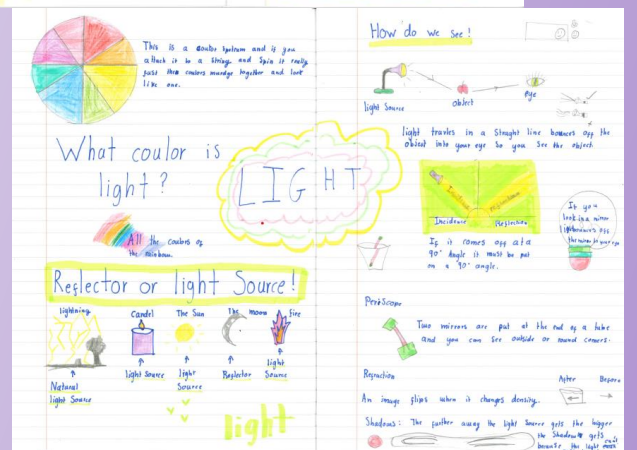 This is a coulor spectrum and is you
attach it to a string and spin it really
just the coulers mundge together and look
like one.
What coulor is
light?
All the coulers of
the rainbow.
LIGHT
Reflector or light Source!
lightning
Natural
light Source
Candel
light Source
The Sun
light
Source
The moon
Reflector
fire
light
Source
light
How do we see!
light Source
object
eye
light travles in a straght line bounces off the
object into your eye so you see the object.
Incidence
Reflection
Incidence Reflection
If it comes off at a
90° Angle it must be put
on a 90° angle.
If you
look in a mirror
light bounces off
the mirror to your eye
Periscope
Two mirrors are put at the end of a tube
and you can see outside or round corners.
Refraction
After Before
An image flips when it changes density.
Shadows: The further away the light source gets the bigger
the Shadow gets
because the light